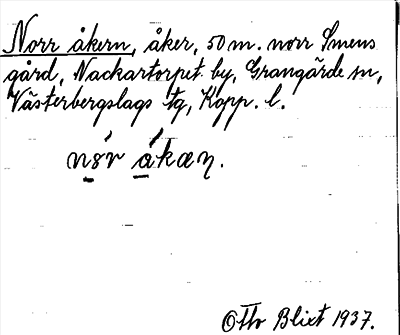 Norr åkern, åker, 50 m. norr Smens
gård, Nackartorpet by, Grangärde sn,
Västerbergslags tg, Kopp. l.
nɷ́r ákæɳ.
Otto Blixt 1937.